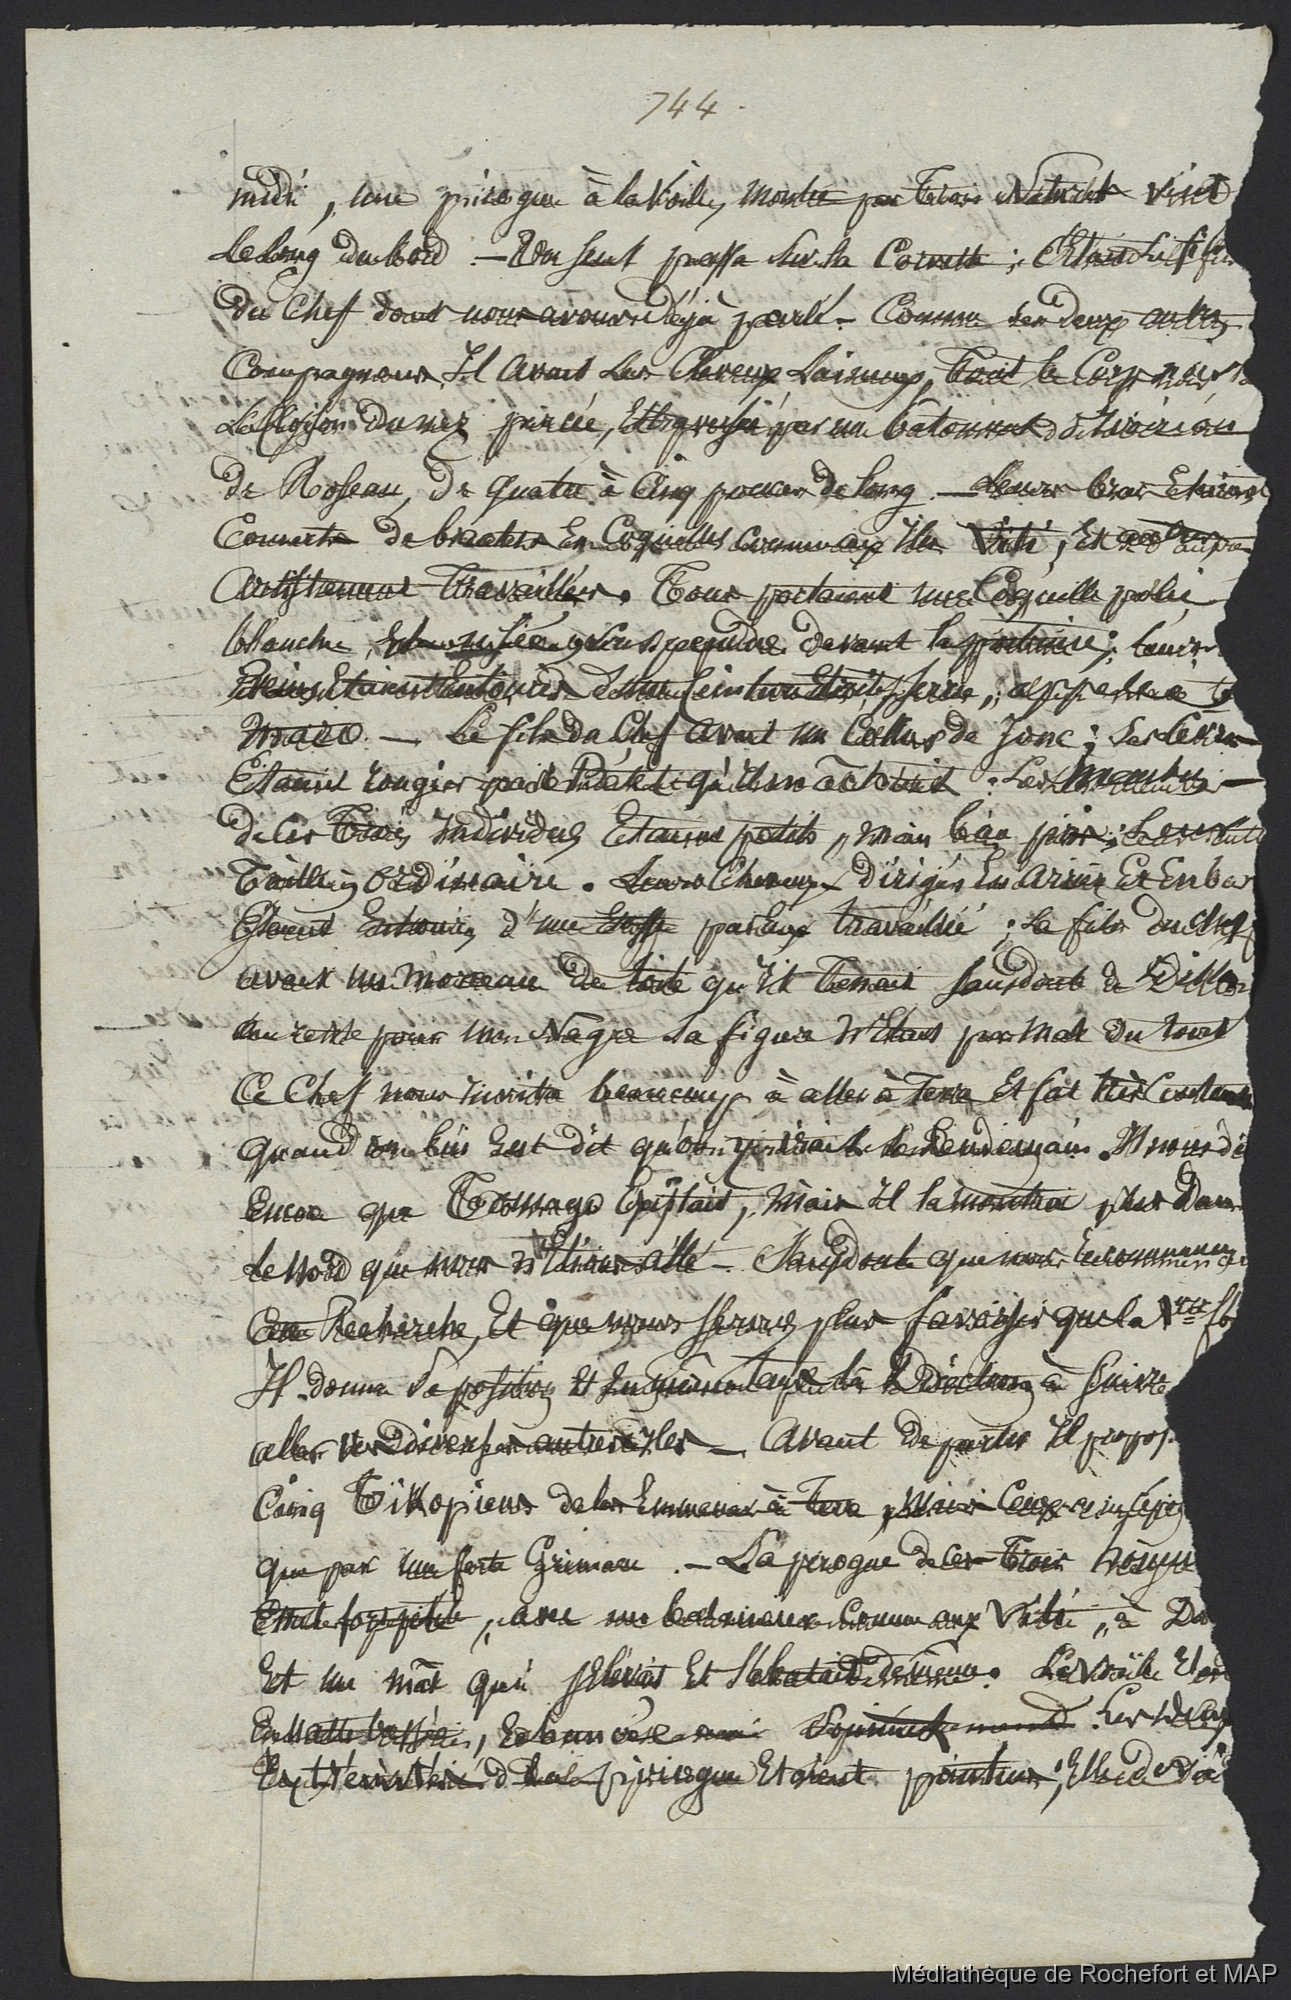 744.
midi, une pirogue à la Voile, montée par Trois Naturels vint
le long du bord — Un seul passa sur la Corvette ; C'était le fi
du Chef dont nous avons déjà parlé — Comme ses deux autres
Compagnons, Il avait les Cheveux Laineux, Tout le Corps noir
La Cloison du nez percée, et traversée par un bâtonnet d'
de Roseau, de quatre à Cinq pouces de long. — Leurs bras Etaient
Couverts de bracelets En Coquilles comme aux Iles Viti, Et
artistement travaillés. Tous portaient une Coquille polie
blanche, suspendue devant la poitrine ; leurs
Reins Etaient Entourés d'une Ceinture Etroite, serrée, appellée
maro. — Le fils du Chef avait un Collier de Jonc ; Ses lèvres
Etaient rougies par le Bétel qu'il mâchait : Les membres
de ces Trois Individus Etaient petits, mais bien pris ; Leur
Taille Ordinaire. Leurs Cheveux dirigés En arrière Et En bas
Etaient Entourés d'une Etoffe par Eux travaillée ; le fils du Chef
avait un morceau de toile qu'il Tenait sans doute de Dillon
au reste pour un Nègre sa figure n'Etait pas mal du tout
Ce Chef nous invita beaucoup à aller à Terre Et fut très Content
quand on lui Eut dit qu'on y irait le lendemain. Il nous di
Encore que Taumago Existait, mais Il la montra plus dans
le Nord que nous n'Etions allé — Sans doute que nous recommence
Cette Recherche, Et que nous serons plus favorisés que la
Il donna sa position Et la Direction à Suivre
aller vers diverses autres Iles — Avant de partir Il propos
Cinq Tikopiens de les Emmener à Terre, Mais Ceux-ci
que par une forte Grimace. — La pirogue de Ces Trois
Etait fort petite, avec un balancier Comme aux Viti, à D
Et un mât qui s'Elevait Et s'abattait de même. La Voile Etait
. Les deux
Extrémités de la pirogue Etaient pointues ;
Médiathèque de Rochefort et MAP